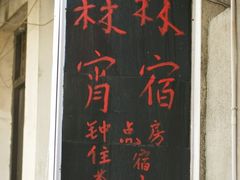 林林
宵宿
钟点房
住宿